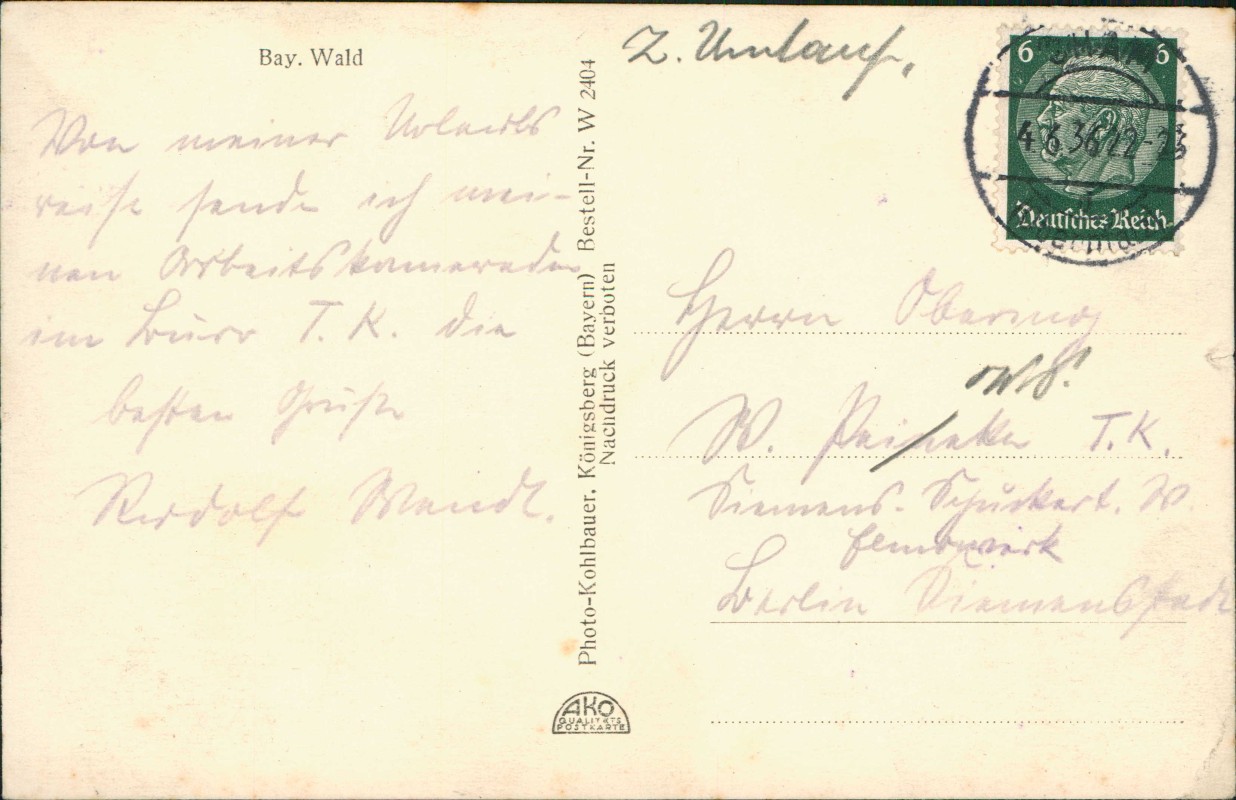 Bay. Wald
Von meiner Urlaubs
reise sende ich mei-
nen Arbeitskameraden
im Büro T. K. die
besten Grüße
Rudolf Wendt.
Photo-Kohlbauer, Königsberg (Bayern) Bestell-Nr. W 2404
Nachdruck verboten
AKO
QUALITÄTS
POSTKARTE
Z. Umlauf.
6 6
CHAM
4.6.36 22-23
Deutsches Reich
Herrn
W. T. K.
Siemens-Schuckert. W.
Elmowerk
Berlin Siemensstadt